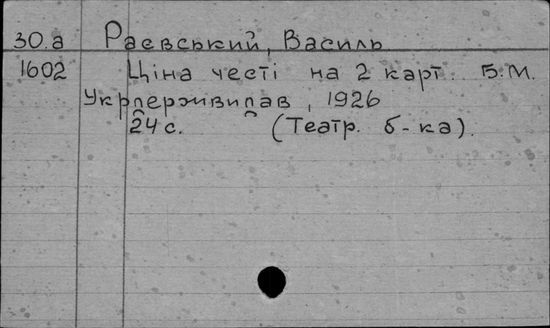 30.а Раєвський, Василь
1602 Ціна честі на 2 карт. Б.М.
Укрдержвидав, 1926
24 с. (Театр. б-ка).